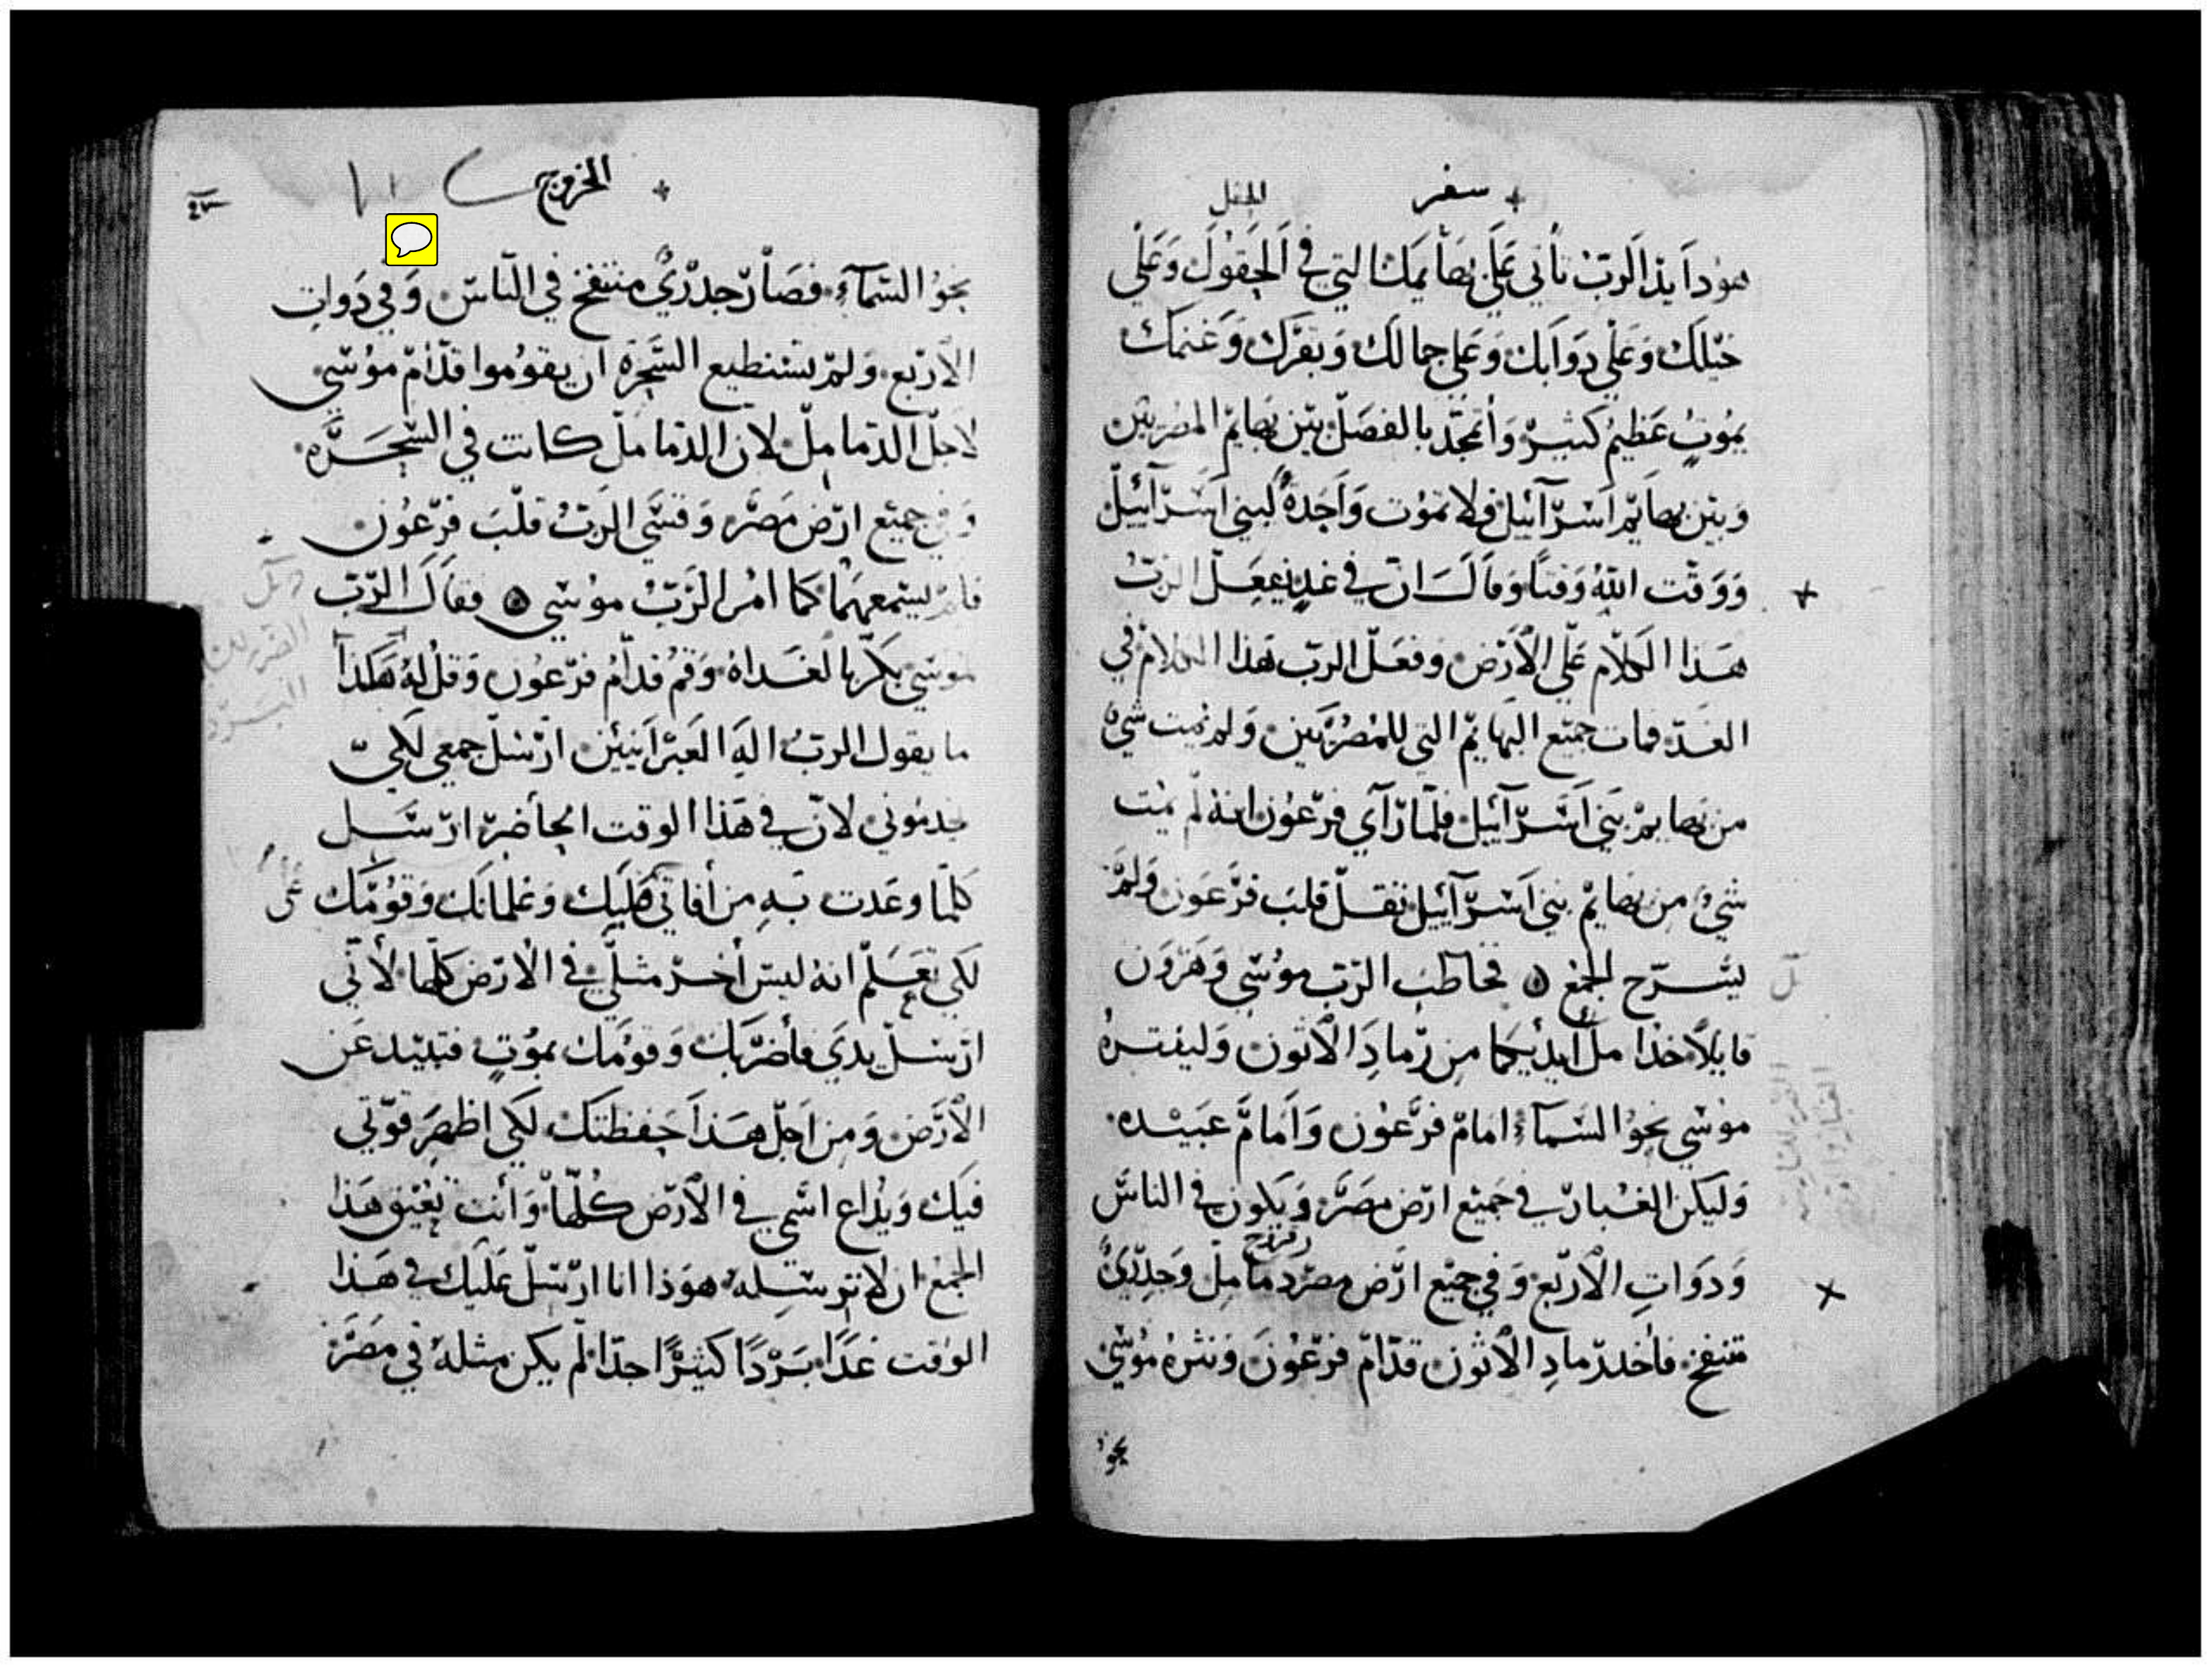 سفر
الحقل
هوذا يد الرب تأتي على بهايمك التي في الحقول وعلى
خيلك وعلى دوابك وعلى جمالك وبقرك وغنمك
بموت عظيم كثير وأتمجد بالفصل بين بهايم المصريين
وبين بهايم اسرآئيل فلا تموت واحدة لبني اسرآئيل
ووقت الله وقتا وقال ان في غد يفعل الرب
هذا الكلام على الأرض وفعل الرب هذا الكلام في
الغد فمات جميع البهايم التي للمصريين ولم يمت شيء
من بهايم بني اسرآئيل فلما رآى فرعون انه لم يمت
شيء من بهايم بني اسرآئيل ثقل قلب فرعون ولم
يسرح الجمع فخاطب الرب موسى وهرون
قايلا خذا مل ايديكما من رماد الاتون وليذره
موسى نحو السمآء امام فرعون وأمام عبيده
وليكن الغبار في جميع ارض مصر ويكون في الناس
ودوات الاربع وفي جميع ارض مصر دمامل وجدري
منتفخ فأخذ رماد الاتون قدام فرعون ونثره موسى
نحو
الخروج
نحو السمآء فصار جدري منتفخ في الناس وفي دوات
الاربع ولم تستطيع السحرة ان يقوموا قدام موسى
لاجل الدمامل لان الدمامل كانت في السحرة
وفي جميع ارض مصر وقسى الرب قلب فرعون
فلم يسمعهما كما امر الرب موسى فقال الرب
لموسى بكر بالغداة وقم قدام فرعون وقل له هكذا
ما يقول الرب اله العبرانيين ارسل جمعي لكي
يخدموني لان في هذا الوقت الحاضر ارسل
كلما وعدت به من أفاتي عليك وغلمانك وقومك
لكي تعلم انه ليس أخر مثلي في الارض كلها لأني
ارسل يدي فأضربك وقومك بموت فتبيد عن
الأرض ومن اجل هذا حفظتك لكي اظهر قوتي
فيك ويذاع اسمي في الأرض كلها وأنت تعيق هذا
الجمع ان لا ترسله هوذا انا ارسل عليك في هذا
الوقت غدا بردا كثيرا جدا لم يكن مثله في مصر